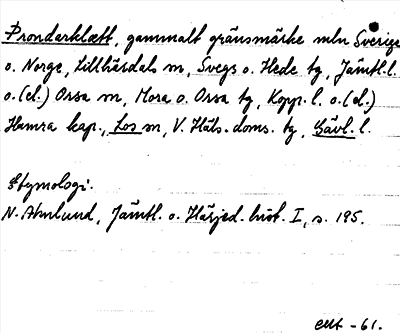 Prondarklätt, gammalt gränsmärke mln Sverige
o. Norge, Lillhärdals sn, Svegs o. Hede tg, Jämtl.l.
o.(el.) Orsa sn, Mora o. Orsa tg, Kopp.l. o.(el.)
Hamra kap., Los sn, V. Häls. doms. tg, Gävl. l.
Etymologi.
N. Ahnlund, Jämtl. o. Härjed. hist. I, s. 195.
-61.